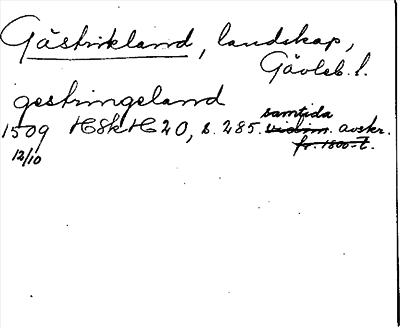 Gästrikland, landskap,
Gävleb. l.
gestringeland
samtida
1509 HSkH 20, s. 285. vidim. avskr.
12/10 fr. 1800-t.